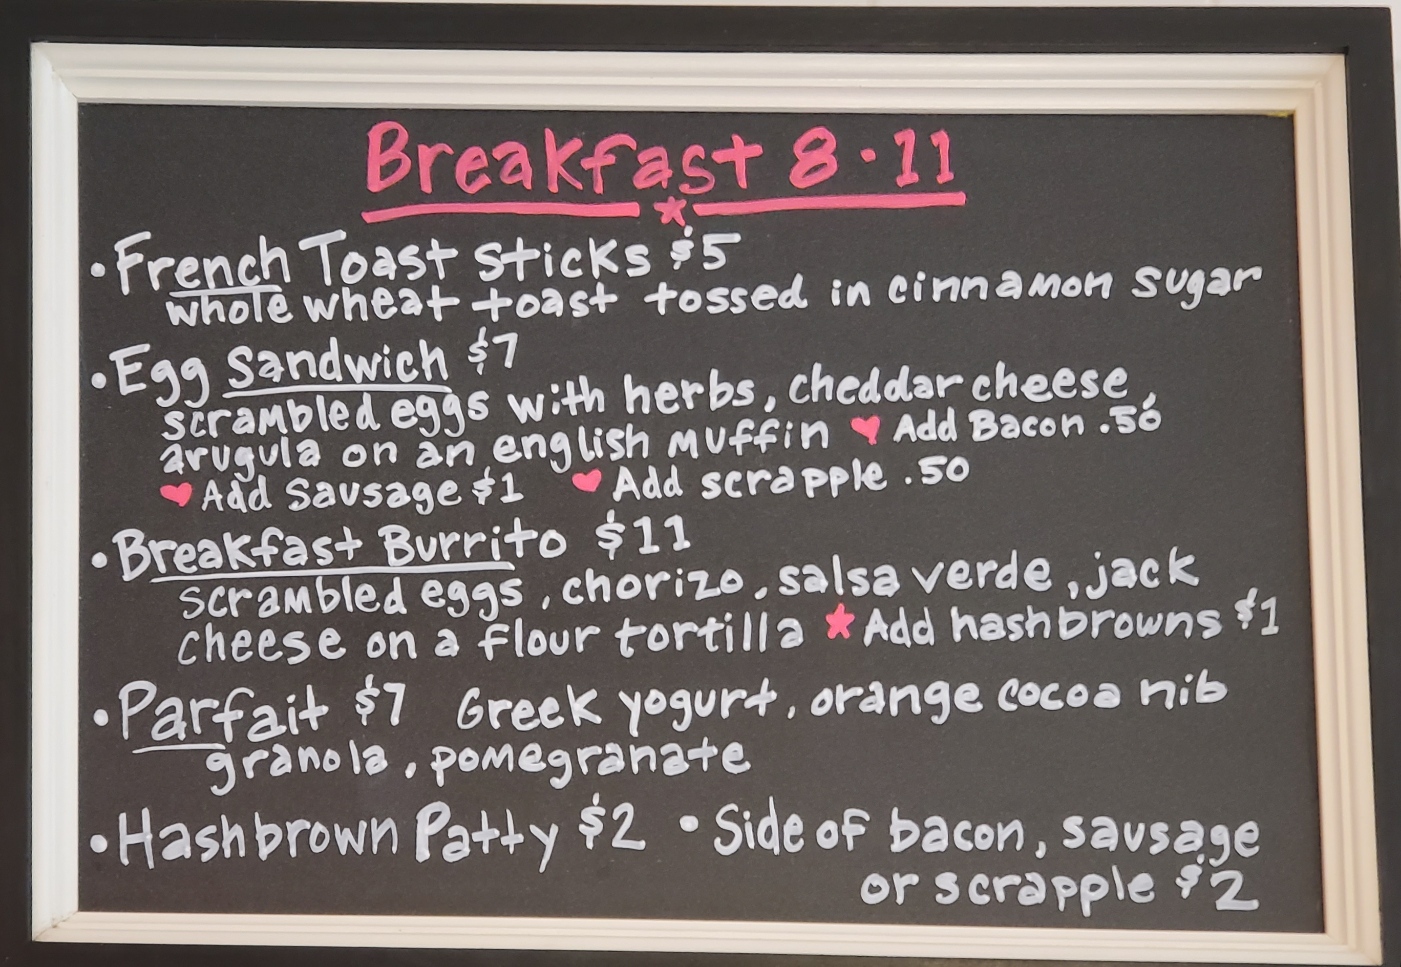 Breakfast 8·11
• French Toast sticks $5
whole wheat toast tossed in cinnamon sugar
• Egg Sandwich $7
scrambled eggs with herbs, cheddar cheese,
arugula on an english muffin ♥ Add Bacon .50
♥ Add Sausage $1 ♥ Add scrapple .50
• Breakfast Burrito $11
scrambled eggs, chorizo, salsa verde, jack
cheese on a flour tortilla ★ Add hashbrowns $1
• Parfait $7 Greek yogurt, orange cocoa nib
granola, pomegranate
• Hashbrown Patty $2 • Side of bacon, sausage
or scrapple $2